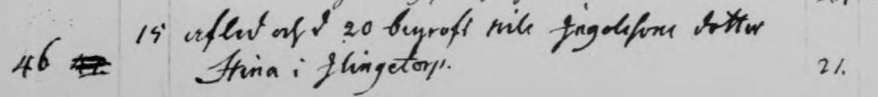 15 afled och d 20 begrofs Nils Ingelssons dotter
46 Stina i Slingetorp. 21.